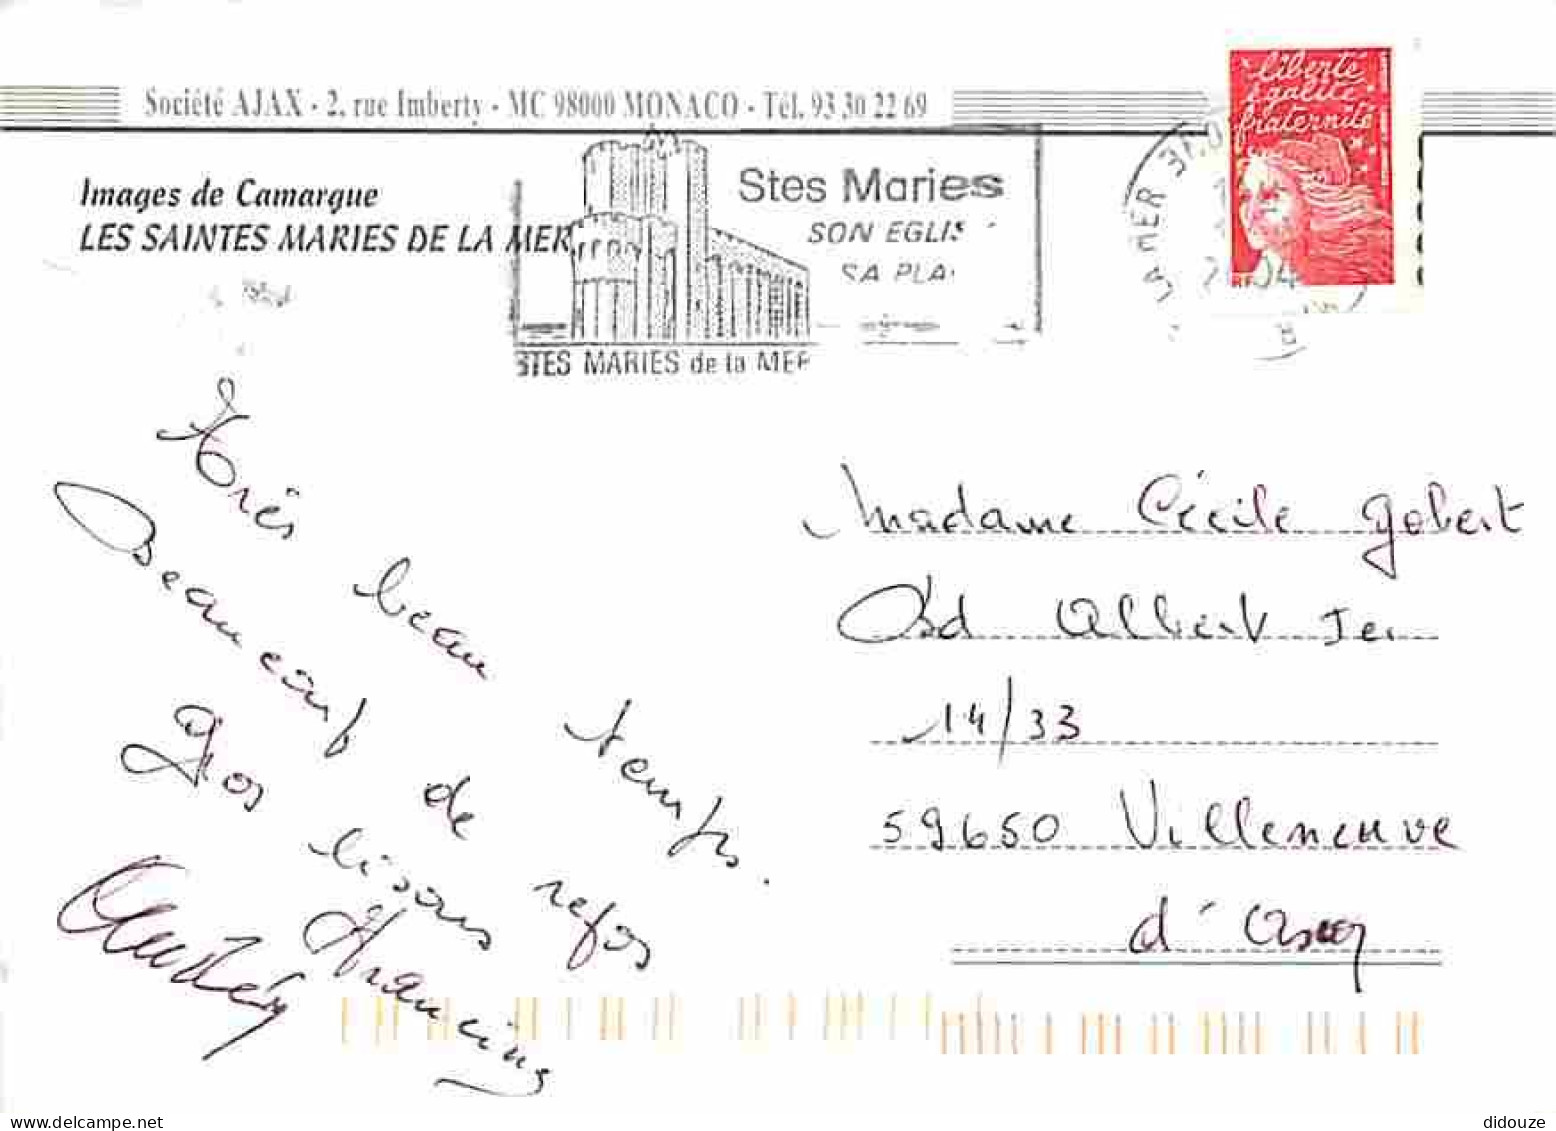 Société AJAX - 2, rue Imberty - MC 98000 MONACO - Tél. 93 30 22 69
liberté
égalité
fraternité
RF
Images de Camargue
LES SAINTES MARIES DE LA MER
Stes Maries
SON EGLIS
SA PLA
STES MARIES de la MER
LA MER
Très beau temps.
Beaucoup de repos
Gros bisous
Francine
Madame Cécile Gobert
Bd Albert Ier
14/33
59650 Villeneuve
d'Ascq
didouze